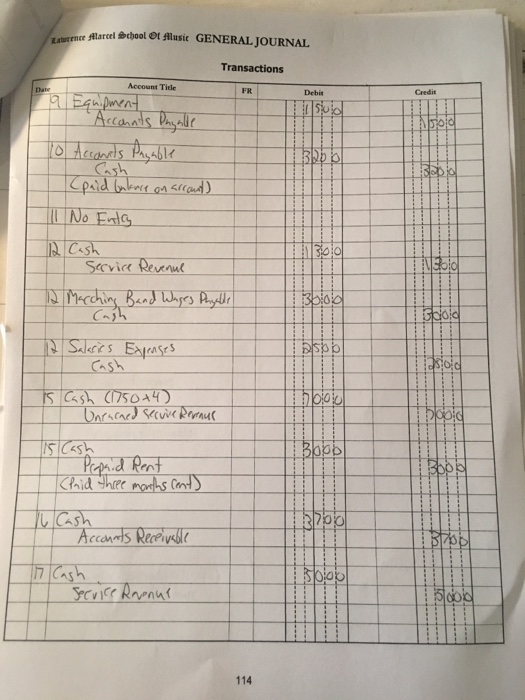 Lawrence Marcel School Of Music GENERAL JOURNAL
Transactions
Date Account Title FR Debit Credit
9 Equipment 1500
Accounts Payable 1500
10 Accounts Payable 3200
Cash 3200
(paid balance on account)
11 No Entry
12 Cash 1300
Service Revenue 1300
12 Marching Band Wages Payable 3000
Cash 3000
12 Salaries Expenses 2500
Cash 2500
15 Cash (1750x4) 7000
Unearned Service Revenue 7000
15 Cash 3000
Prepaid Rent 3000
(Paid three months rent)
16 Cash 3700
Accounts Receivable 3700
17 Cash 5000
Service Revenue 5000
114